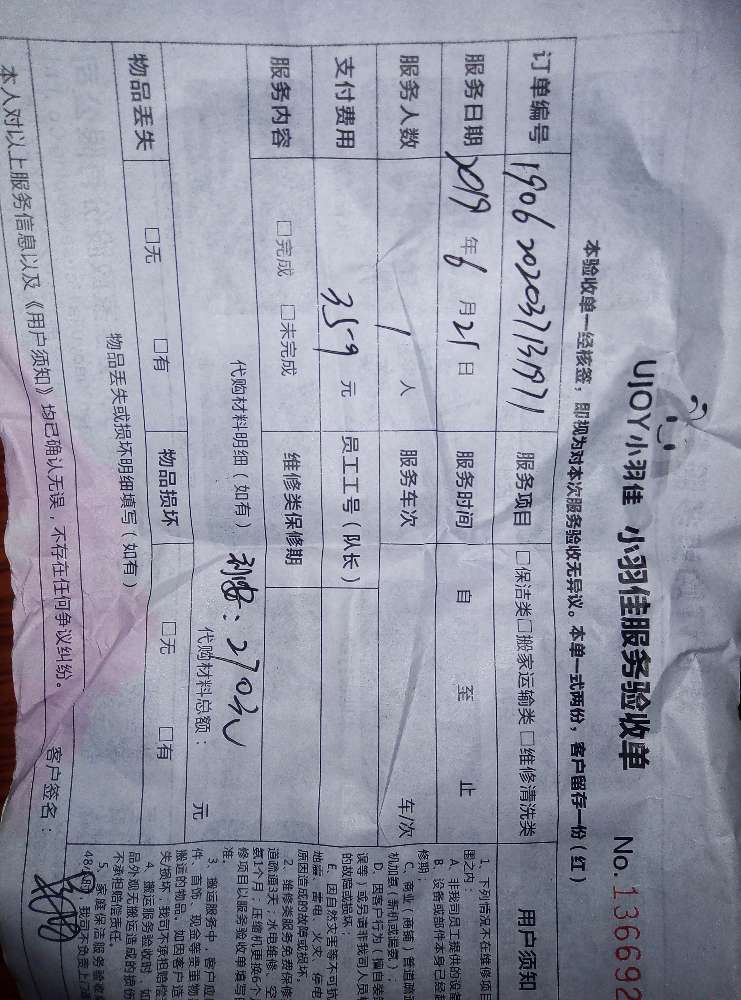 UJOY小羽佳 小羽佳服务验收单 No.136692
本验收单一经核签，即视为对本次服务验收无异议。本单一式两份，客户留存一份（红）
订单编号 服务项目 □保洁类□搬家运输类□维修清洗类
服务日期 2019年6月21日 服务时间 自 至 止
服务人数 1人 服务车次 车/次
支付费用 359元 员工工号（队长）
服务内容 □完成 □未完成 维修类保修期
代购材料明细（如有）
代购材料总额： 元
物品丢失 □无 □有 物品损坏 □无 □有
物品丢失或损坏明细填写（如有）
本人对以上服务信息以及《用户须知》均已确认无误，不存在任何争议纠纷。 客户签名：
用户须知
1、下列情况不在维修项目
围之内：
A、非我司员工提供的设备
B、设备或部件本身已经超
修期；
C、商业（商铺）管道疏通
机加氨（新机或漏氨）；
D、因客户行为（擅自装
误等）或另请非我司人员
的故障或损坏；
E、因自然灾害等不可抗
地震、雷电、火灾、停电
原因造成的故障或损坏。
2、维修类服务免费保修
道疏通3天；水电维修、空
氨1个月；压缩机更换6个
修项目以服务验收单填写
准
3、搬运服务中，客户应
件、首饰、现金等贵重物
搬运的物品，如因客户造
失损坏，我司不承担赔偿
4、搬运服务验收时，如
品外观无搬运造成的损伤
不承担赔偿责任。
5、家庭保洁服务验收